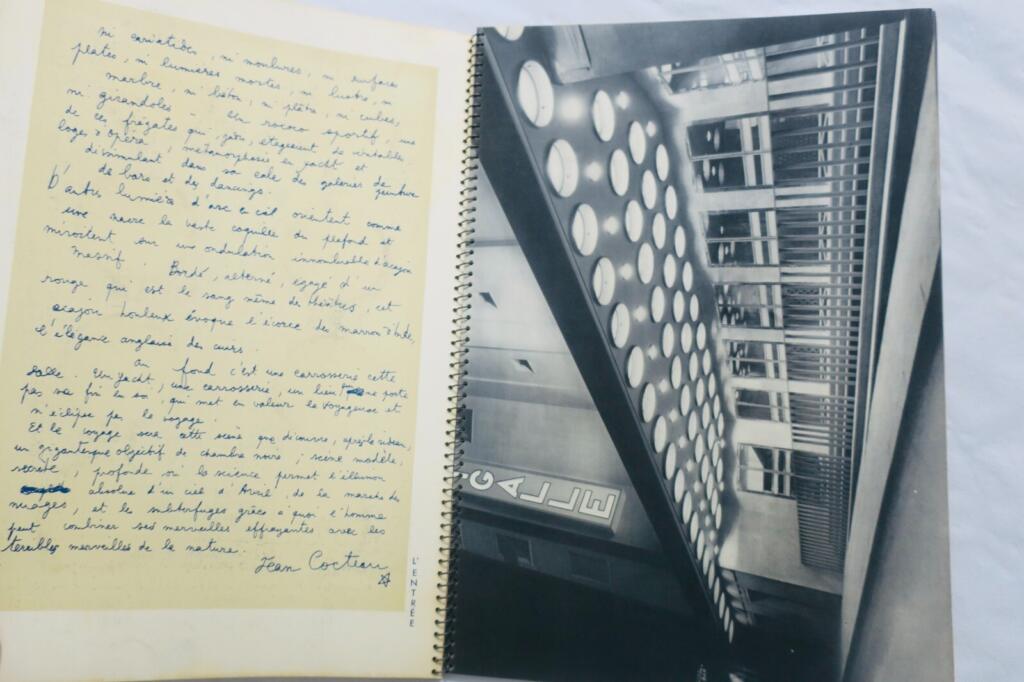 ni cariatides, ni moulures, ni surfaces
plates, ni lumières mortes, ni lustre, ni
marbre, ni béton, ni plâtre, ni cubes,
ni girandoles. Un rococo sportif, une
de ces frégates qui, jadis, étageaient de véritables
loges d'opéra, métamorphosée en yacht et
dissimulant dans sa cale des galeries de peinture
de bars et des dancings.
D'autres lumières d'arc en ciel orientent comme
une nacre la vaste coquille du plafond et
miroitent sur une ondulation innombrable d'acajou
massif. Bordé, alterné, égayé d'un
rouge qui est le sang même des théâtres, cet
acajou houleux évoque l'écorce des marrons d'Inde,
l'élégance anglaise des cuirs.
Au fond c'est une carrosserie cette
salle. Un yacht, une carrosserie, un lieu une porte
pas sa fin en soi, qui met en valeur le voyageur et
n'éclipse pas le voyage.
Et le voyage sera cette scène que découvre, après le rideau,
un gigantesque objectif de chambre noire; scène modèle,
secrète, profonde où la science permet l'illusion
absolue d'un ciel d'Avril, de la marche des
nuages, et les subterfuges grâce à quoi l'homme
peut combiner ses merveilles effrayantes avec les
terribles merveilles de la nature.
Jean Cocteau
L'ENTRÉE
GALLE